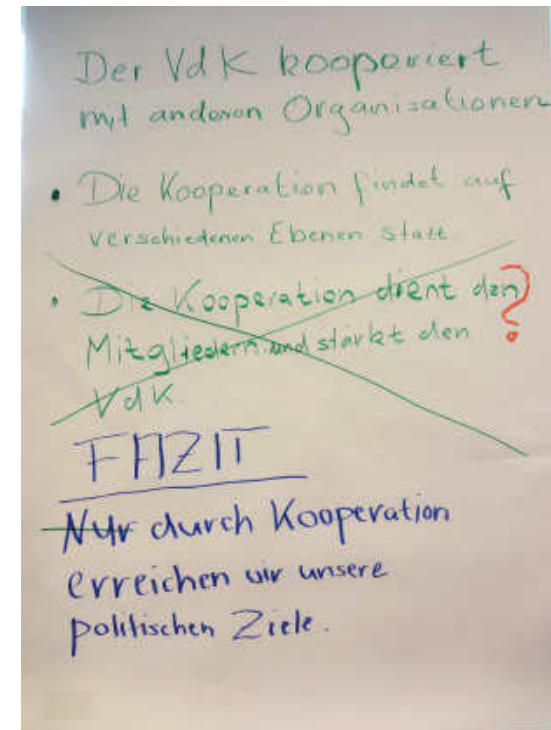 Der VdK kooperiert
mit anderen Organisationen
• Die Kooperation findet auf
verschiedenen Ebenen statt
• Die Kooperation dient den ?
Mitgliedern und stärkt den
VdK.
FAZIT
Nur durch Kooperation
erreichen wir unsere
politischen Ziele.